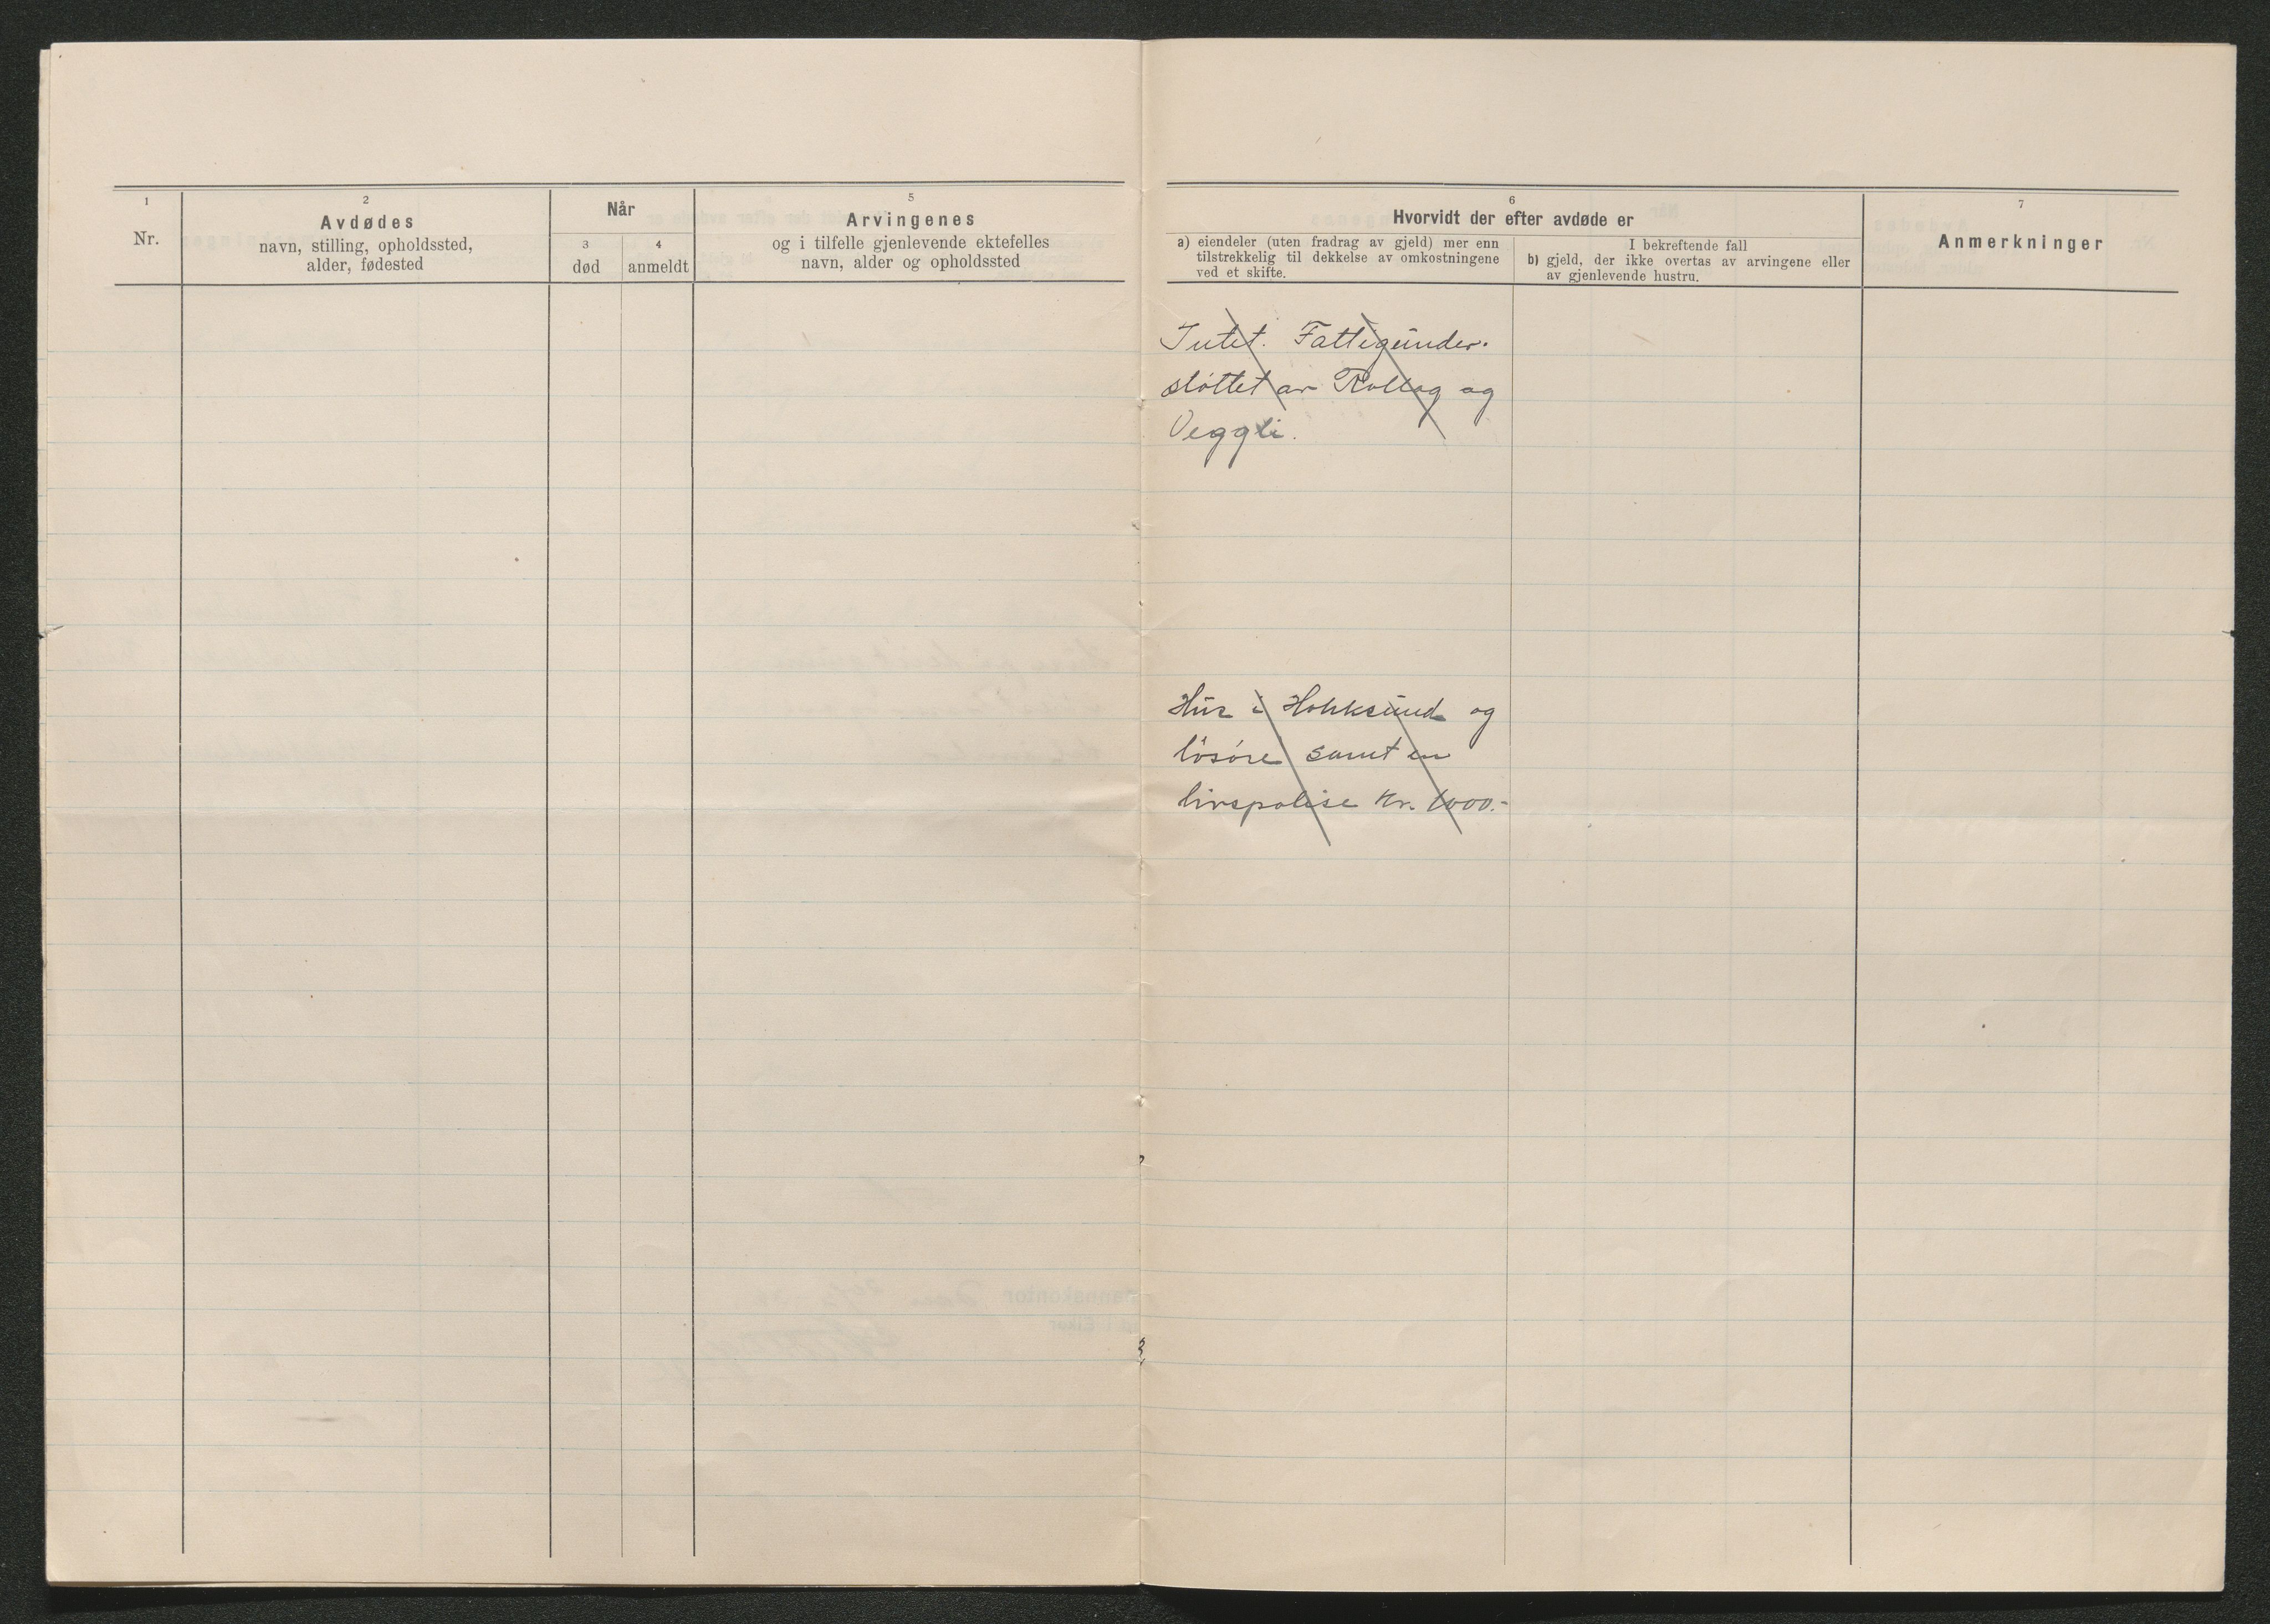 1
Nr.
2
Avdødes
navn, stilling, opholdssted,
alder, fødested
Når
3
død
4
anmeldt
5
Arvingenes
og i tilfelle gjenlevende ektefelles
navn, alder og opholdssted
6
Hvorvidt der efter avdøde er
a) eiendeler (uten fradrag av gjeld) mer enn
tilstrekkelig til dekkelse av omkostningene
ved et skifte.
I bekreftende fall
b) gjeld, der ikke overtas av arvingene eller
av gjenlevende hustru.
7
Anmerkninger
Intet. Fattigunder-
støttet av Rollag og
Veggli.
Hus i Hokksund og
løsøre samt en
livspolise Kr. 1000.-